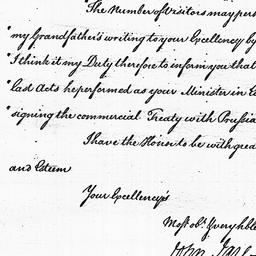 The Number of visitors may perh
"my Grandfather's writing to your Excellency by
"I think it my Duty therefore to inform you that
"last Acts he performed as your Minister in E
"signing the commercial Treaty with Prussia
I have the Honor to be with grea
and Esteem
Your Excellency's
Most obt. & very hble
John